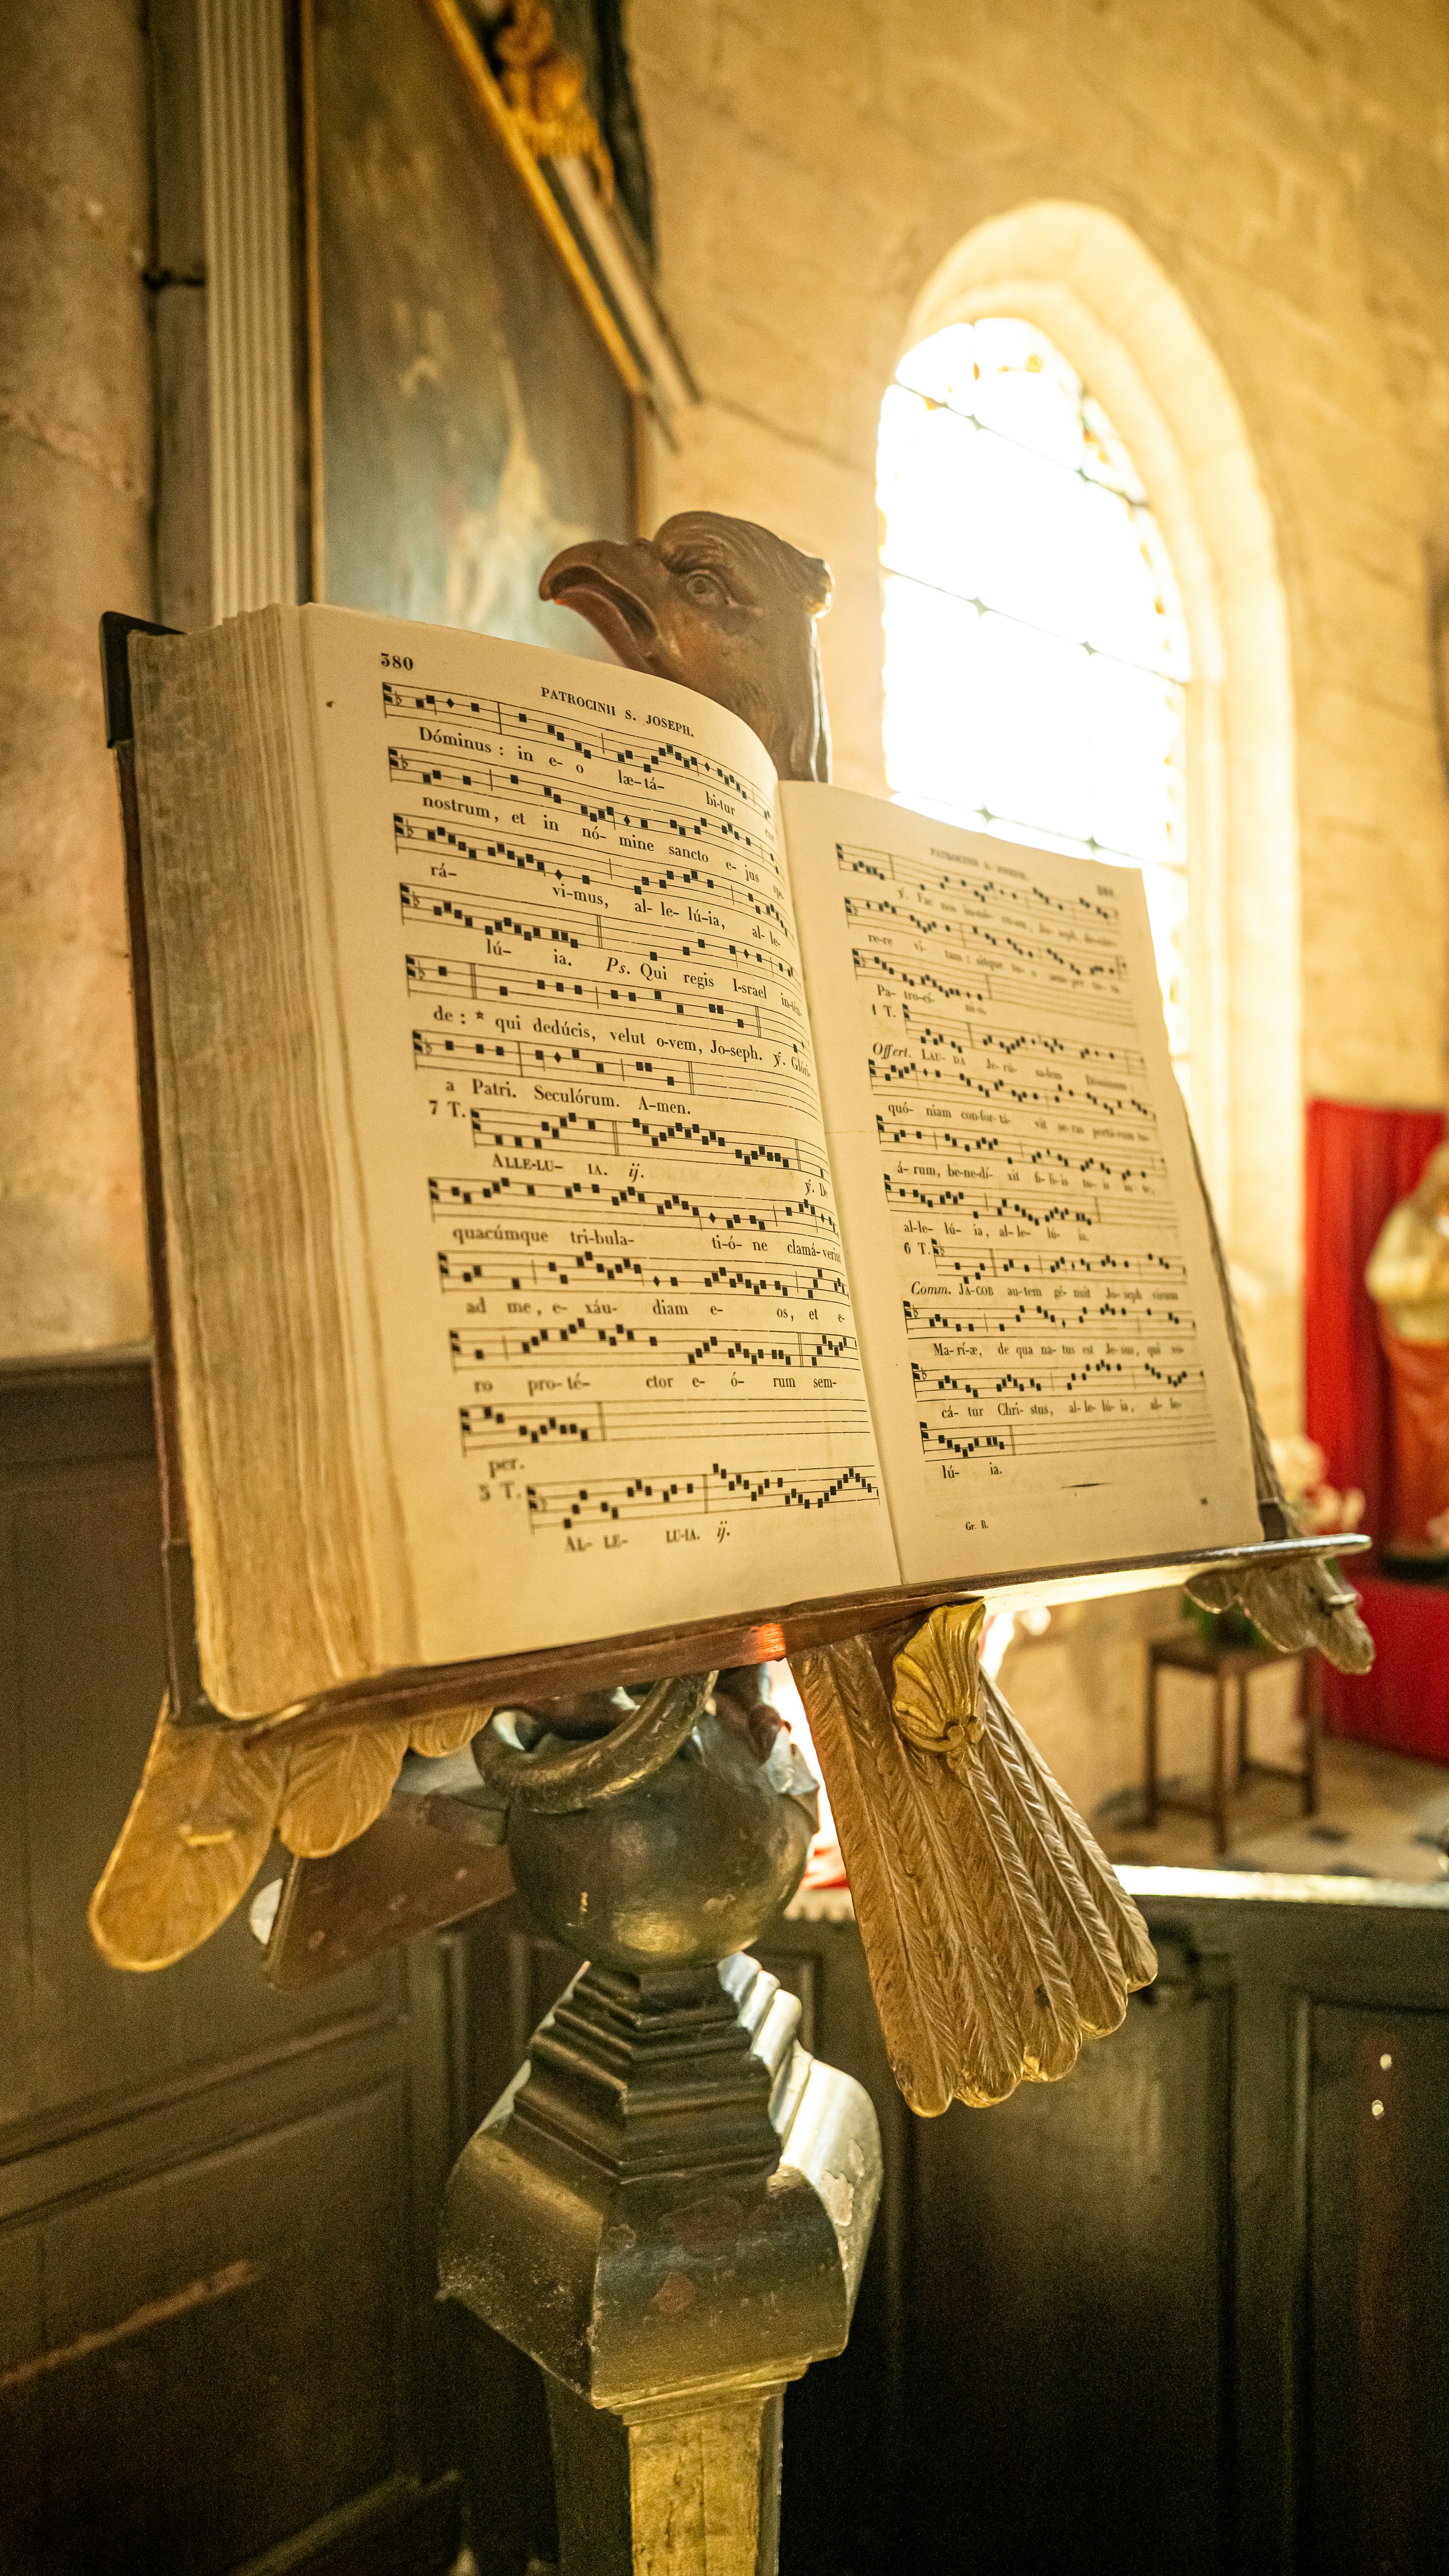 380
PATROCINII S. JOSEPH.
Dóminus : in e- o læ-tá- bi-tur cor
nostrum, et in nó- mine sancto e- jus spe-
rá- vi-mus, al- le- lú-ia, al- le-
lú- ia. Ps. Qui regis I-srael in-tén-
de : * qui dedúcis, velut o-vem, Jo-seph. ℣. Glóri-
a Patri. Seculórum. A-men.
7 T.
ALLE-LU- IA. ij. ℣. De
quacúmque tri-bula- ti-ó- ne clamá-verint
ad me, e- xáu- diam e- os, et e-
ro pro-té- ctor e- ó- rum sem-
per.
5 T.
AL- LE- LU-IA. ij.
PATROCINII S. JOSEPH.
381
℣. Fac nos
re-re vi- tam : sitque tu- o semper tu- ta
Pa- tro-cí- ni-o.
1 T.
Offert. LAU- DA Je- rú- salem Dóminum :
quó- niam con-for-tá- vit se-ras portá-rum tu-
á- rum, be-ne-dí- xit fi- li-is tu- is in te,
al-le- lú- ia, al- le- lú- ia.
6 T.
Comm. JA-COB au-tem gé- nuit Jo- seph virum
Ma- rí-æ, de qua na- tus est Je-sus, qui vo-
cá- tur Chri- stus, al- le- lú- ia, al- le-
lú- ia.
Gr. R.